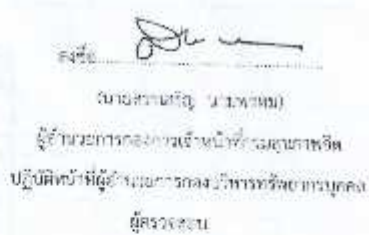 ลงชื่อ
(นาย
ผู้อำนวยการกองการเจ้าหน้าที่กรมสุขภาพจิต
ปฏิบัติหน้าที่ผู้อำนวยการกองบริหารทรัพยากรบุคคล
ผู้ตรวจสอบ